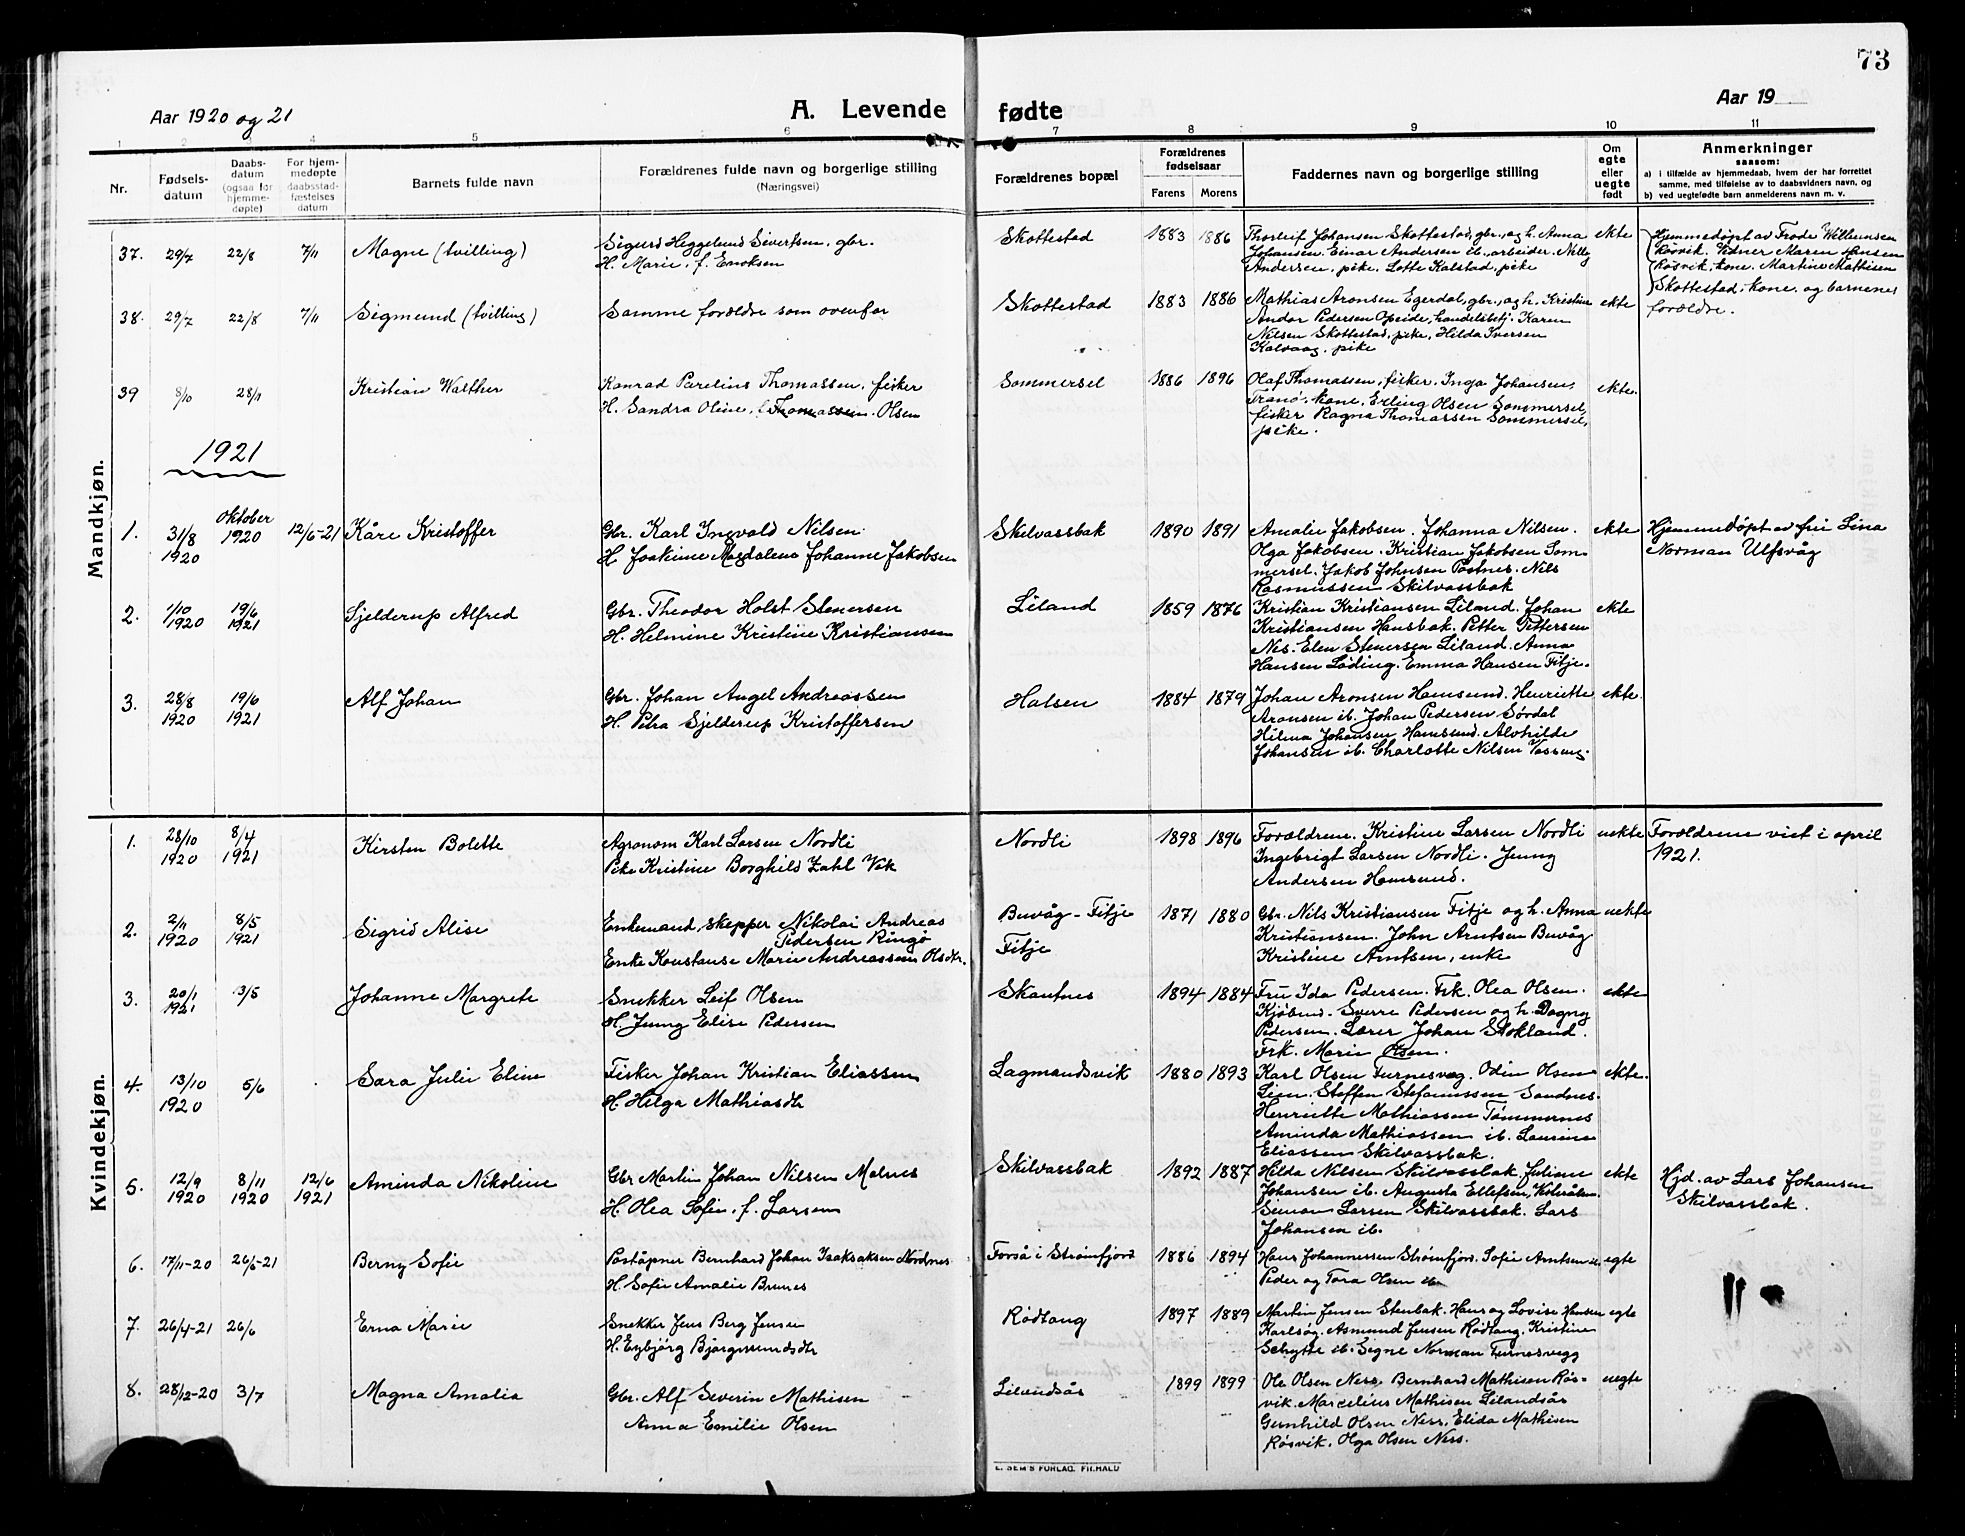 73
Aar 1920 og 21
A. Levende
fødte
Aar 19
1 2 3 4 5 6 7 8 9 10 11
Nr.
Fødsels-
datum
Daabs-
datum
(ogsaa for
hjemme-
døpte)
For hjem-
medøpte
daabsstad-
fæstelses
datum
Barnets fulde navn
Forældrenes fulde navn og borgerlige stilling
(Næringsvei)
Forældrenes bopæl
Forældrenes
fødselsaar
Farens Morens
Faddernes navn og borgerlige stilling
Om
egte
eller
uegte
født
Anmerkninger
saasom:
a) i tilfælde av hjemmedaab, hvem der har forrettet
samme, med tilføielse av to daabsvidners navn, og
b) ved uegtefødte barn anmelderens navn m. v.
Mandkjøn.
37. 29/7 22/8 7/11 Magne (tvilling)
Sigurd Heggelund Sivertsen, gbr.
H. Marie, f. Enoksen
Skottestad 1883 1886
Thorleif Johansen Skottestad, gbr., og h. Anna
Johansen. Einar Andersen ib., arbeider. Nelly
Andersen, pike. Lotte Kalstad, pike
ekte
Hjemmedøpt av Frode Willumsen
Røsvik. Vidner Maren Hansen
Røsvik, kone. Martine Mathisen
Skottestad, kone, og barnenes
forældre.
38. 29/7 22/8 7/11 Sigmund (tvilling)
Samme forældre som ovenfor
Skottestad 1883 1886
Mathias Aronsen Egerdal, gbr., og h. Kristine
Andor Pedersen Opeide, handelsbetj. Karen
Nilsen Skottestad, pike, Hilda Iversen
Kalvaag, pike
ekte
39 8/10 28/11 Kristian Walther
Konrad Parelius Thomassen, fisker
H. Sandra Oline, f. Thomassen. Olsen
Sommersel 1886 1896
Olaf Thomassen, fisker. Inga Johansen,
Tranø, kone. Erling Olsen Sommersel,
fisker Ragna Thomassen Sommersel,
pike.
ekte.
1921
1. 31/8 1920 Oktober 1920 12/6-21 Kåre Kristoffer
Gbr. Karl Ingvald Nilsen
H Joakime Magdalena Johanne Jakobsen
Skilvassbak 1890 1891
Amalie Jakobsen. Johanna Nilsen.
Olga Jakobsen. Kristian Jakobsen Som-
mersel. Jakob Johnsen Tostnes. Nils
Rasmussen Skilvassbak
ekte
Hjemmedøpt av fru Lina
Norman Ulfsvåg
2. 1/10 1920 19/6 1921 Sjelderup Alfred
Gbr. Theodor Holst Stenersen
H. Helmine Kristine Kristiansen
Liland 1859 1876
Kristian Kristiansen Liland. Johan
Kristiansen Hansbak. Petter Pettersen
Nes. Elen Stenersen Liland. Anna
Hansen Løding. Emma Hansen Fitje.
ekte
3. 28/8 1920 19/6 1921 Alf Johan
Gbr. Johan Angel Andreassen
H. Petra Sjelderup Kristoffersen
Halsen 1884 1879
Johan Aronsen Hamsund. Henriette
Aronsen ib. Johan Pedersen Sørdal
Hilma Johansen Hamsund. Alvhilde
Johansen ib. Charlotte Nilsen
ekte.
Kvindekjøn.
1. 28/10 1920 8/4 1921 Kirsten Bolette
Agronom Karl Larsen Nordli
Pike Kristine Borghild Zahl Vik
Nordli 1898 1896
Forældrene. Kristine Larsen Nordli
Ingebrigt Larsen Nordli. Jenny
Andersen Hamsund.
uekte
Forældrene viet i april
1921.
2. 2/11 1920 8/5 1921 Sigrid Alise
Enkemand skepper Nikolai Andreas
Pedersen Ringø
Enke Konstanse Marie Andreassen Olsdtr.
Buvåg - Fitje
Fitje
1871 1880
Gbr. Nils Kristiansen Fitje og h. Anna
Kristiansen. John Arntsen Buvåg
Kristine Arntsen, enke
uekte
3. 20/1 1921 3/5 Johanne Margrete
Snekker Leif Olsen
H. Jenny Elise Pedersen
Skutnes 1894 1884
Fru Ida Pedersen. Frk. Olea Olsen.
Kjøbmd. Sverre Pedersen og h. Dagny
Pedersen. Lærer Johan Stokland.
Frk. Marie Olsen.
ekte
4. 13/10 1920 5/6 Sara Julie Eline
Fisker Johan Kristian Eliassen
H. Helga Mathiasdtr
Lagmandsvik 1880 1893
Karl Olsen Furnesvæg. Odin Olsen
Lien. Steffen Stefanussen Sandnes.
Henriette Mathiassen Tømmernes
Aminda Mathiassen ib. Laurina
Eliassen Skilvassbak.
ekte.
5. 12/9 1920 8/11 1920 12/6 1921 Aminda Nikoline
Gbr Martin Johan Nilsen Malnes
H. Olea Sofie, f. Larsen
Skilvassbak 1892 1887
Hilda Nilsen Skilvassbak Juliane
Johansen ib. Augusta Ellefsen,
Simon Larsen Skilvassbak. Lars
Johansen ib.
ekte
Hjd. av Lars Johansen
Skilvassbak.
6. 17/11-20 26/6-21 Berny Sofie
Poståpner Bernhard Johan Isaksaksen Nordnes
H. Sofie Amalie Brunes
Forså i Strømfjord 1886 1894
Hans Johannessen Strømfjord. Sofie Arntsen ib.
Peder og Tora Olsen ib
egte
7. 26/4-21 26/6 Erna Marie
Snekker Jens Berg Jensen
H. Eybjörg Björgmundsdtr
Rødtang 1897 1889
Martin Jensen Stenbak. Hans og Lovise Hansen
Karlsøy. Asmund Jensen Rødtang. Kristine
Schytte ib. Signe Norman Furnesvegg
egte
8. 28/12-20 3/7 Magna Amalia
Gbr. Alf Severin Mathisen
Anna Emilie Olsen
Lilandsås 1899 1899
Ole Olsen Ness. Bernhard Mathisen Røs-
vik. Marcelius Mathisen Lilandsås
Gunhild Olsen Ness, Elida Mathisen
Røsvik. Olga Olsen Ness.
uegte
E. SEM'S FORLAG, FR.HALD